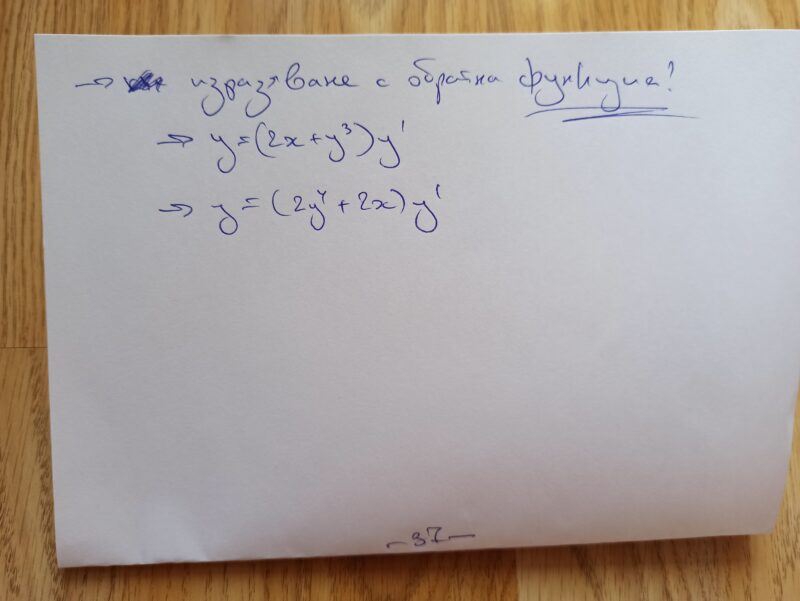 → изразяване с обратна функция!
→ y=(2x+y³)y'
→ y=(2y⁴+2x)y'
-37-